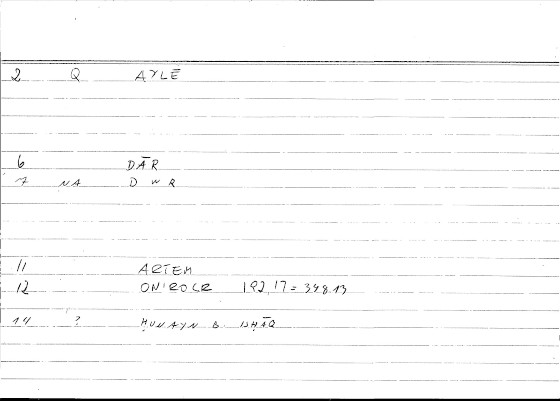 2 Q AYLĒ
6 DĀR
7 NA D W R
11 ARTEM
12 ONIROCR 192,17 = 398.13
14 ? ḤUNAYN B. ISḤĀQ